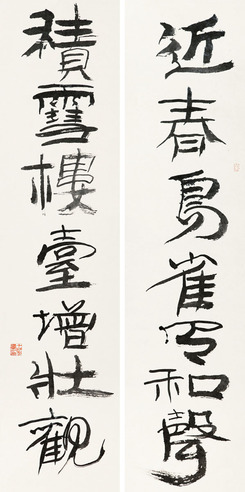 近春鳥雀有和聲
積雪樓臺增壯觀